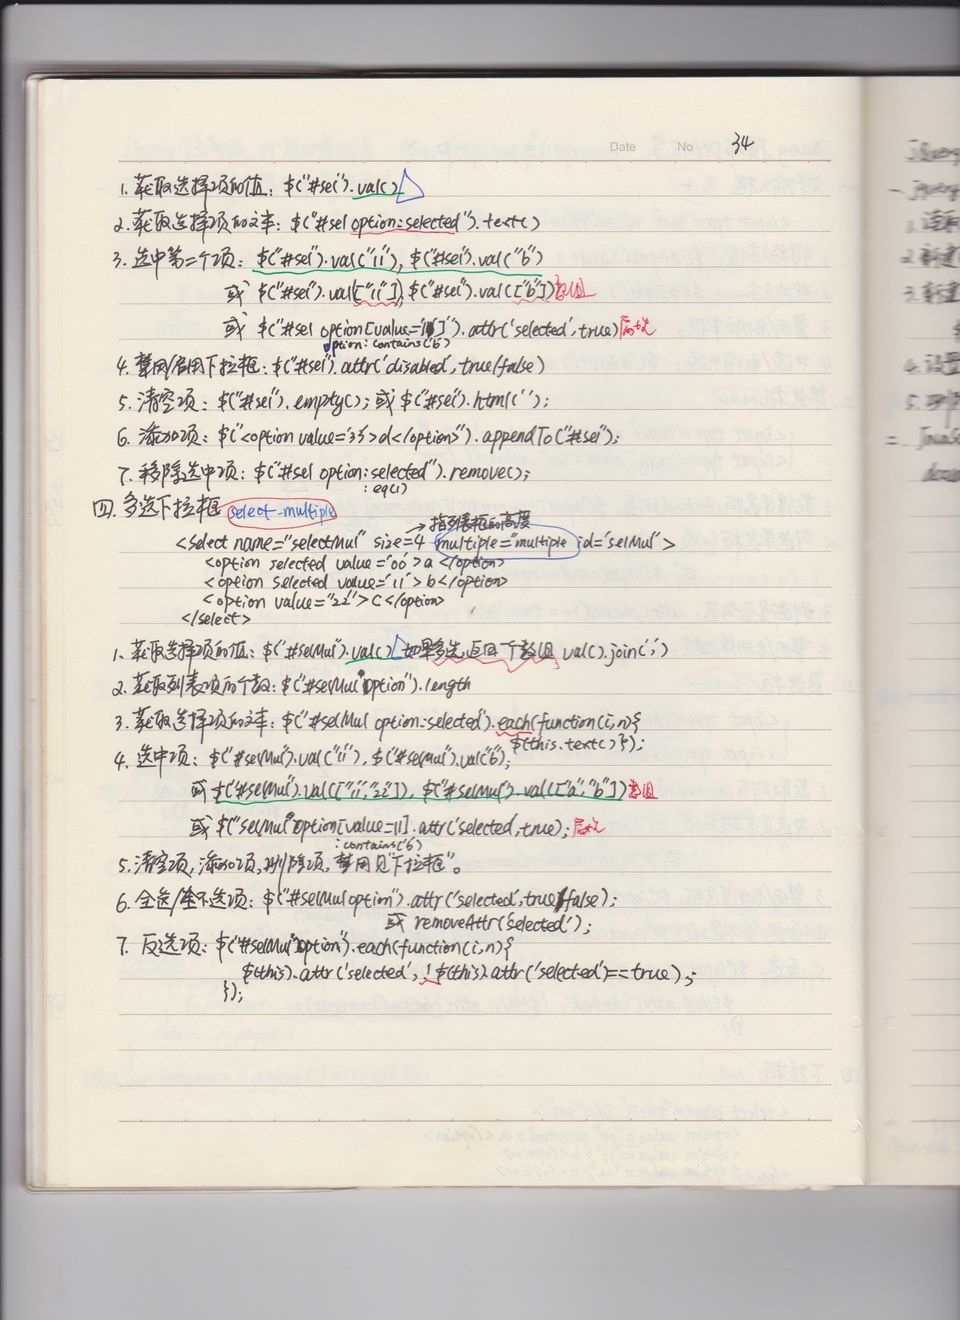 Date No 34
1. 获取选择项的值: $("#sel").val()
2. 获取选择项的文本: $("#sel option:selected").text()
3. 选中第二个项: $("#sel").val("11"), $("#sel").val("b")
或 $("#sel").val(["11"]), $("#sel").val(["b"]) 数组
或 $("#sel option[value='11']").attr('selected',true)
option:contains('b')
4. 禁用/启用下拉框: $("#sel").attr('disabled',true/false)
5. 清空项: $("#sel").empty(); 或 $("#sel").html('');
6. 添加项: $("<option value='33'>d</option>").appendTo("#sel");
7. 移除选中项: $("#sel option:selected").remove();
:eq(1)
四. 多选下拉框 select-multiple
→指列表框的高度
<select name="selectMul" size=4 multiple="multiple" id='selMul'>
<option selected value='00'>a</option>
<option selected value='11'>b</option>
<option value="22">c</option>
</select>
1. 获取选择项的值: $("#selMul").val() 如果多选,返回一个数组 val().join(',')
2. 获取列表项的个数: $("#selMul option").length
3. 获取选择项的文本: $("#selMul option:selected").each(function(i,n){
$(this.text()});
4. 选中项: $("#selMul").val("11"), $("#selMul").val("b");
或 $("#selMul").val(["11","22"]), $("#selMul").val(["a","b"]) 数组
或 $("selMul option[value=11].attr('selected',true);
:contains('b')
5. 清空项,添加项,删除项,禁用见"下拉框"。
6. 全选/全不选项: $("#selMul option").attr('selected',true/false);
或 removeAttr('selected');
7. 反选项: $("#selMul option").each(function(i,n){
$(this).attr('selected', !$(this).attr('selected')==true);
});